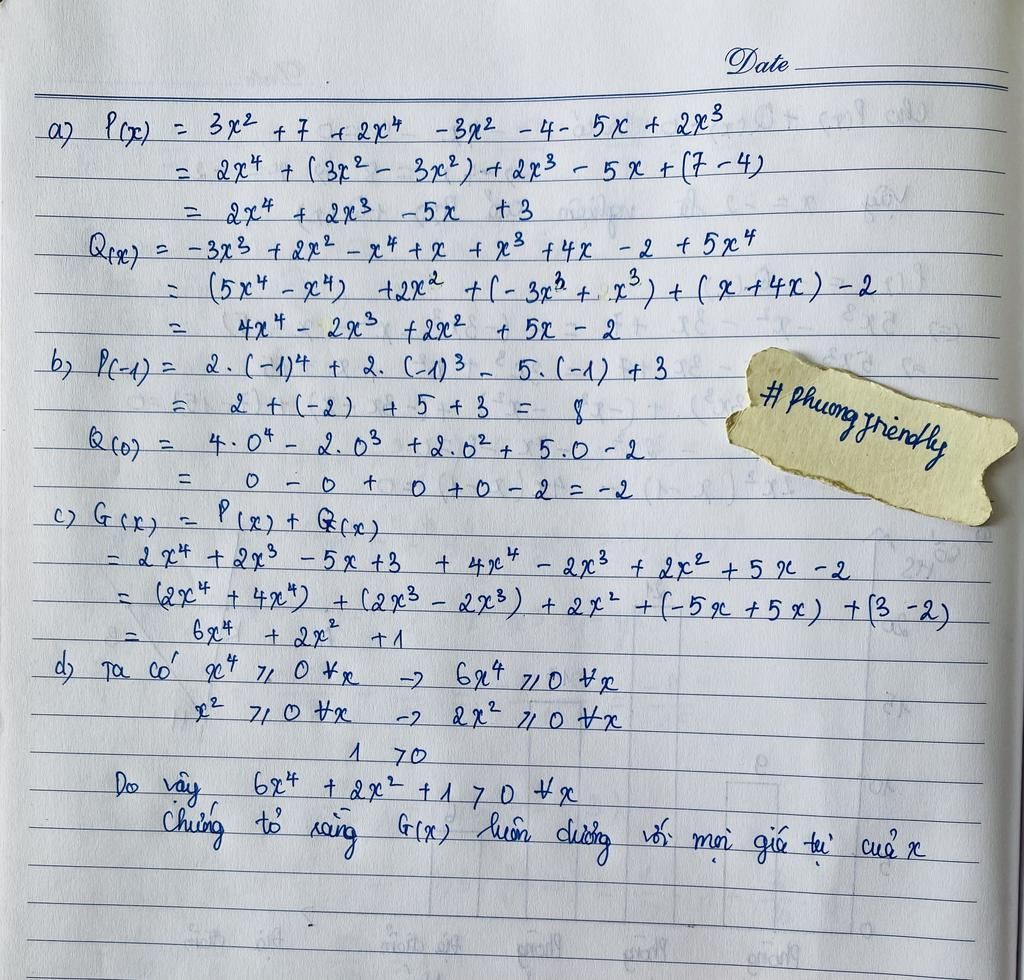 Date
a) P(x) = 3x² + 7 + 2x⁴ - 3x² - 4 - 5x + 2x³
= 2x⁴ + (3x² - 3x²) + 2x³ - 5x + (7 - 4)
= 2x⁴ + 2x³ - 5x + 3
Q(x) = -3x³ + 2x² - x⁴ + x + x³ + 4x - 2 + 5x⁴
= (5x⁴ - x⁴) + 2x² + (-3x³ + x³) + (x + 4x) - 2
= 4x⁴ - 2x³ + 2x² + 5x - 2
b) P(-1) = 2.(-1)⁴ + 2.(-1)³ - 5.(-1) + 3
= 2 + (-2) + 5 + 3 = 8
#phuongfriendly
Q(0) = 4.0⁴ - 2.0³ + 2.0² + 5.0 - 2
= 0 - 0 + 0 + 0 - 2 = -2
c) G(x) = P(x) + Q(x)
= 2x⁴ + 2x³ - 5x + 3 + 4x⁴ - 2x³ + 2x² + 5x - 2
= (2x⁴ + 4x⁴) + (2x³ - 2x³) + 2x² + (-5x + 5x) + (3 - 2)
= 6x⁴ + 2x² + 1
d) Ta có x⁴ ⩾ 0 ∀x → 6x⁴ ⩾ 0 ∀x
x² ⩾ 0 ∀x → 2x² ⩾ 0 ∀x
1 > 0
Do vậy 6x⁴ + 2x² + 1 > 0 ∀x
Chứng tỏ rằng G(x) luôn dương với mọi giá trị của x